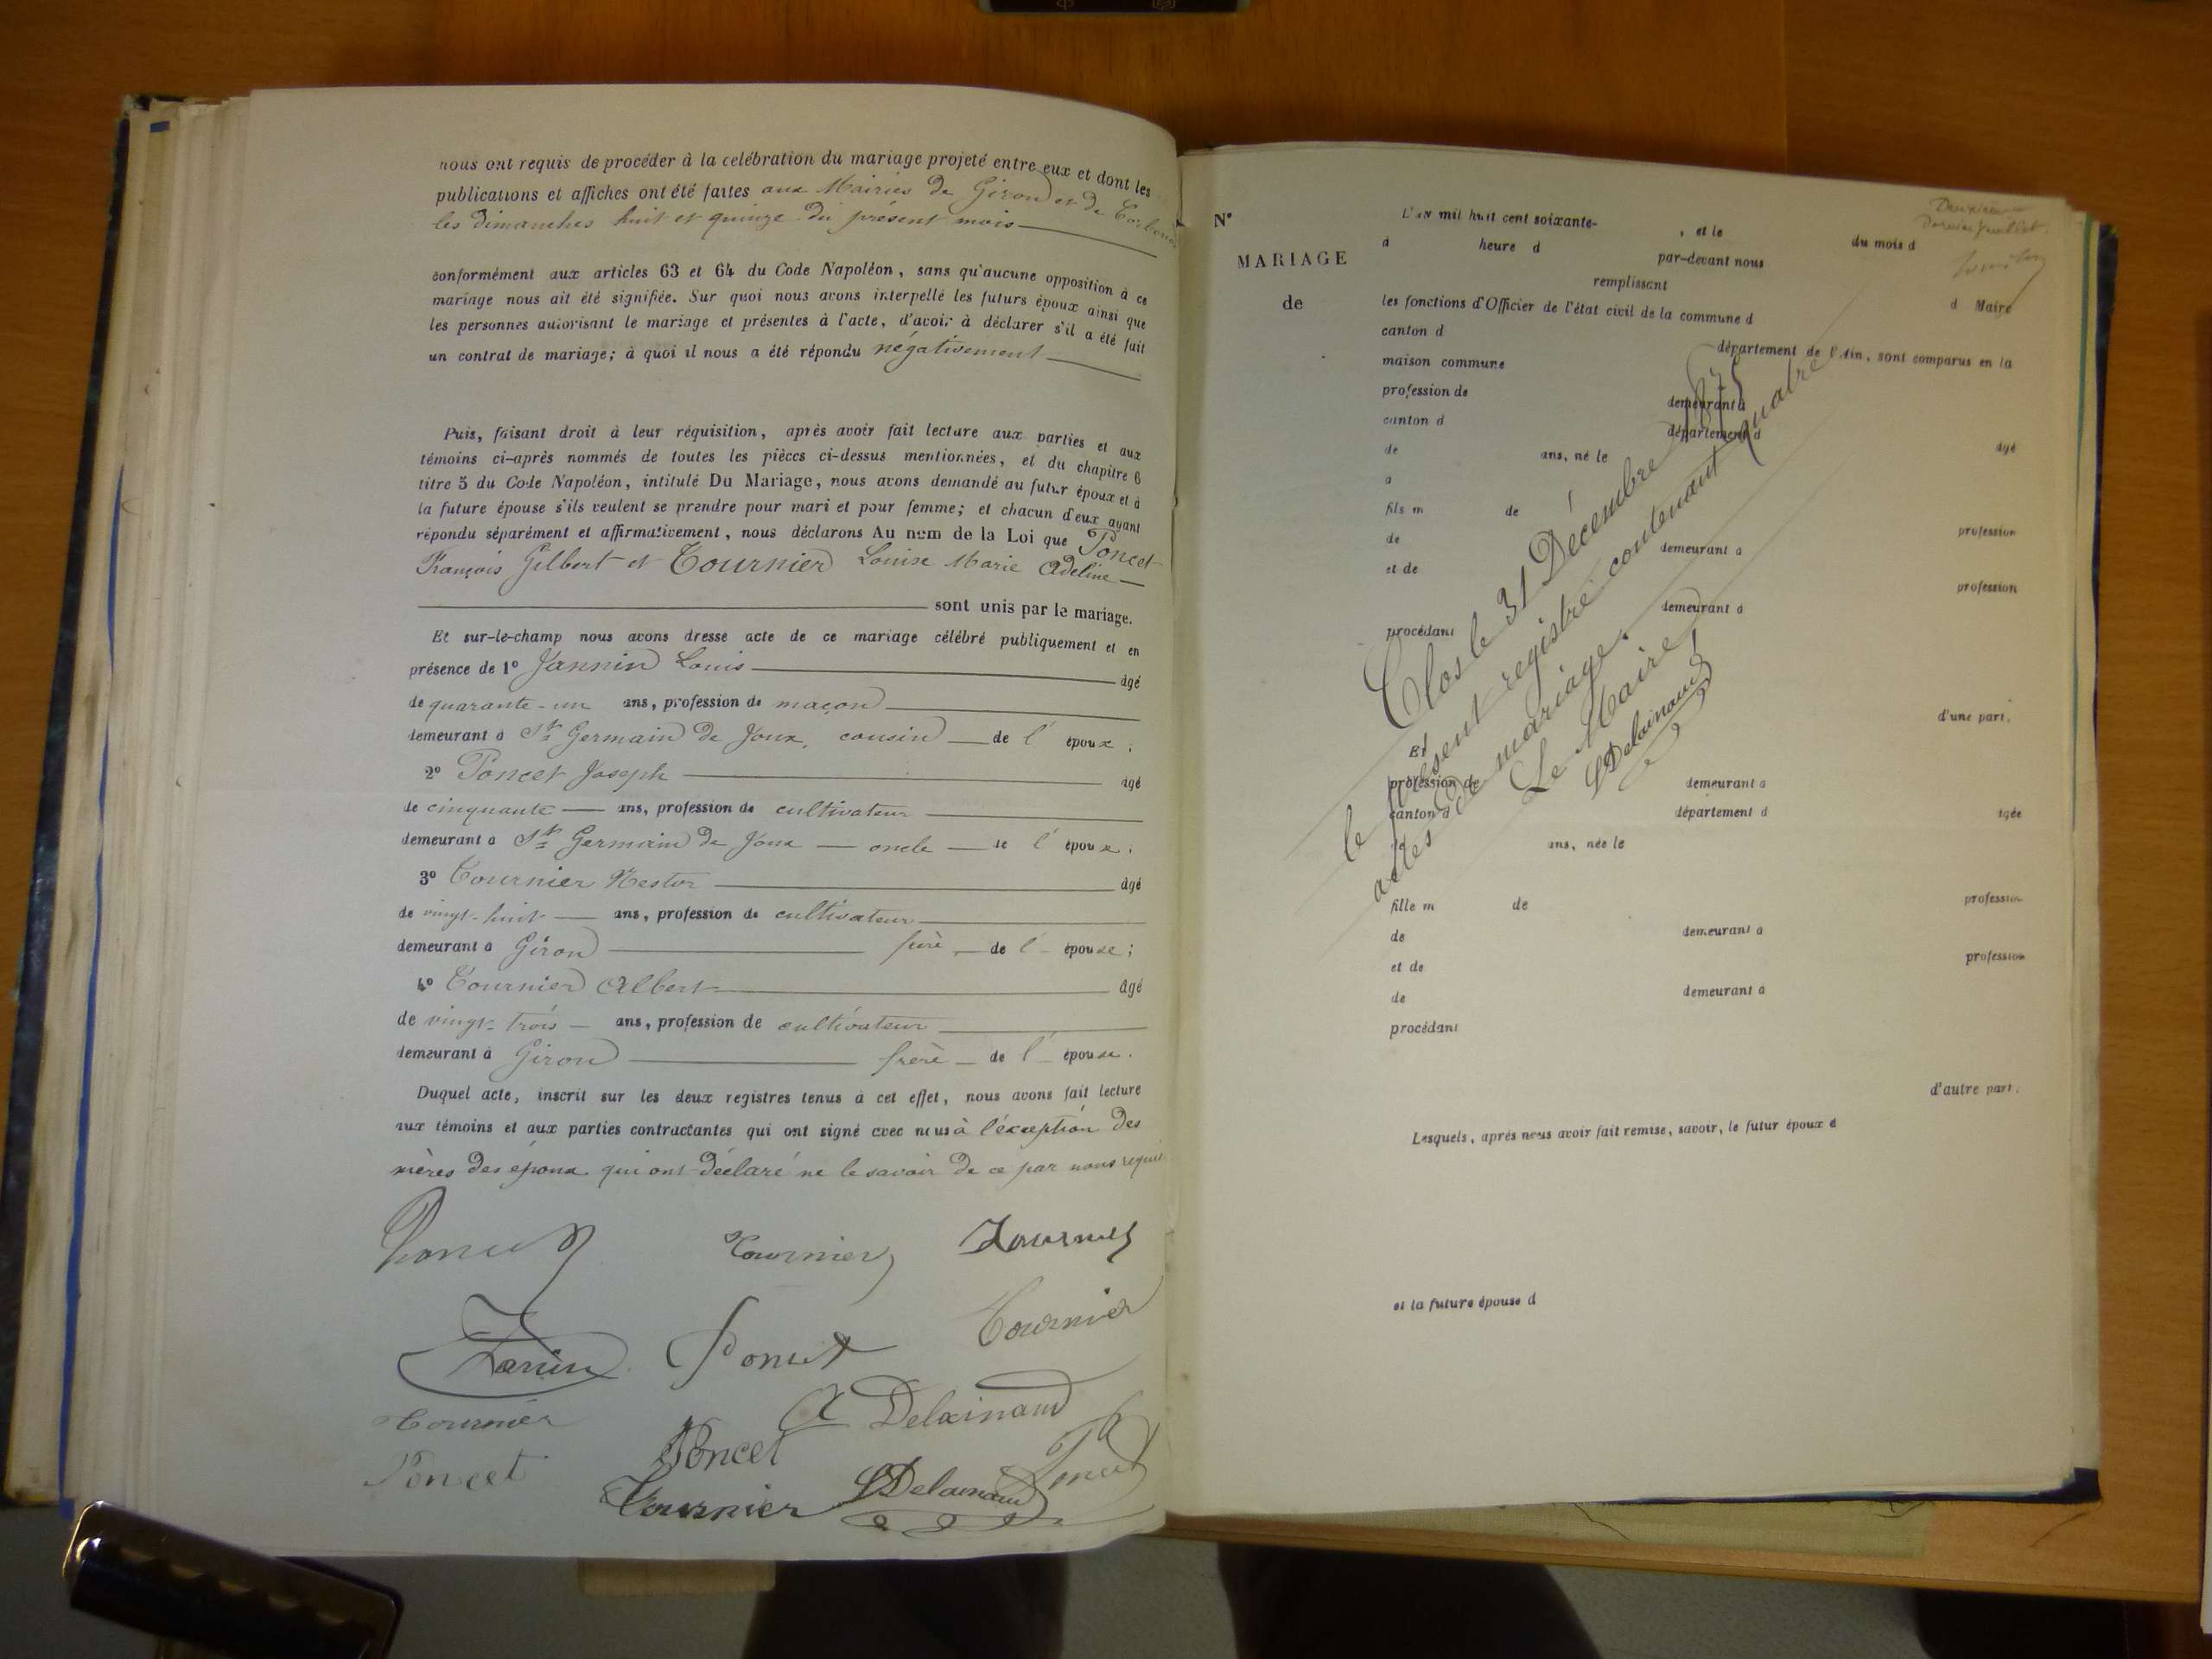 nous ont requis de procéder à la celébration du mariage projeté entre eux et dont les
publications et affiches ont été faites aux Mairies de Giron et de
les dimanches huit et quinze du présent mois
conformément aux articles 63 et 64 du Code Napoléon, sans qu'aucune opposition à ce
mariage nous ait été signifiée. Sur quoi nous avons interpellé les futurs époux ainsi que
les personnes autorisant le mariage et présentes à l'acte, d'avoir à déclarer s'il a été fait
un contrat de mariage; à quoi il nous a été répondu négativement
Puis, faisant droit à leur réquisition, après avoir fait lecture aux parties et aux
témoins ci-après nommés de toutes les pièces ci-dessus mentionnées, et du chapitre 6
titre 5 du Code Napoléon, intitulé Du Mariage, nous avons demandé au futur époux et à
la future épouse s'ils veulent se prendre pour mari et pour femme; et chacun d'eux ayant
répondu séparément et affirmativement, nous déclarons Au nom de la Loi que Poncet
François Gilbert et Tournier Louise Marie Adeline
sont unis par le mariage.
Et sur-le-champ nous avons dressé acte de ce mariage célébré publiquement et en
présence de 1° Jannin Louis âgé
de quarante-un ans, profession de maçon
demeurant à St Germain de Joux, cousin de l'époux;
2° Poncet Joseph âgé
de cinquante ans, profession de cultivateur
demeurant à St Germain de Joux oncle de l'époux.
3° Tournier Nestor âgé
de vingt-huit ans, profession de cultivateur
demeurant à Giron frère de l'épouse;
4° Tournier Albert âgé
de vingt-trois ans, profession de cultivateur
demeurant à Giron frère de l'épouse.
Duquel acte, inscrit sur les deux registres tenus à cet effet, nous avons fait lecture
aux témoins et aux parties contractantes qui ont signé avec nous à l'éxception des
mères des époux qui ont déclaré ne le savoir de ce par nous requis
Poncet Tournier Tournier
Jannin Poncet Tournier
Tournier A Delainaud
Poncet Poncet
Tournier Delainaud Poncet
N°
MARIAGE
de
Deuxième
dernier feuillet
L'AN mil huit cent soixante- , et le du mois d
d heure d par-devant nous
remplissant
les fonctions d'Officier de l'état civil de la commune d d Maire
canton d département de l'Ain, sont comparus en la
maison commune
profession de demeurant à
canton d département d
de ans, né le agé
a
fils m de
de demeurant a profession
et de profession
demeurant a
procédant
d'une part.
Et
profession de demeurant a
canton d département d agée
de ans, née le
fille m de profession
de demeurant a
et de profession
de demeurant a
procédant
d'autre part.
Lesquels, après nous avoir fait remise, savoir, le futur époux d
et la future épouse d
Clos le 31 Décembre 1875
le présent registre contenant quatre
actes de mariage.
Le Maire
Delainaud